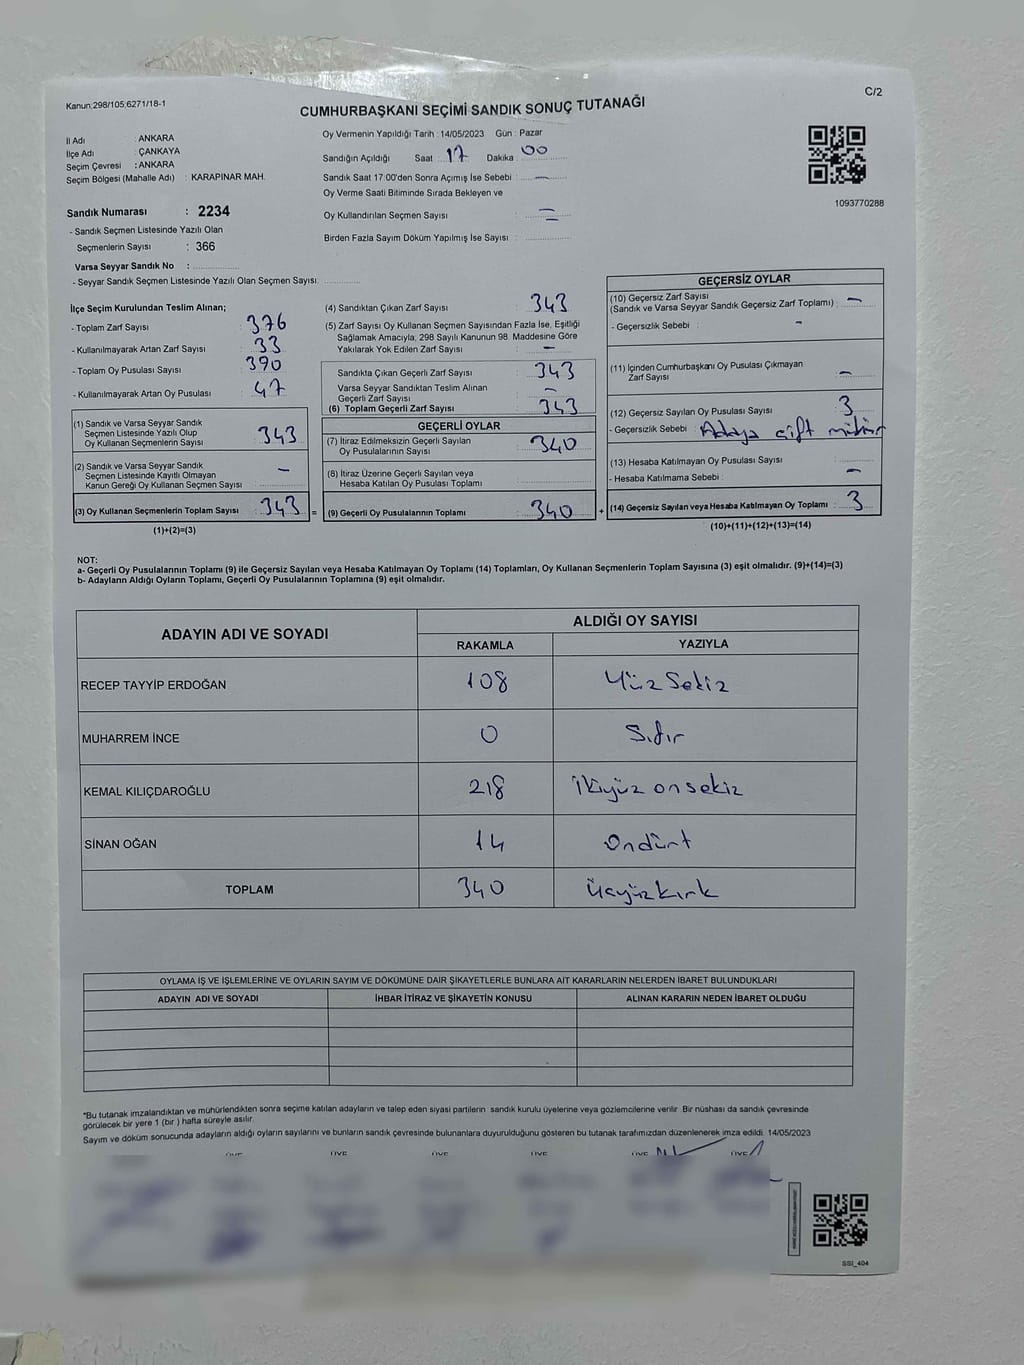 Kanun:298/105;6271/18-1
C/2
CUMHURBAŞKANI SEÇİMİ SANDIK SONUÇ TUTANAĞI
İl Adı : ANKARA
İlçe Adı : ÇANKAYA
Seçim Çevresi : ANKARA
Seçim Bölgesi (Mahalle Adı) : KARAPINAR MAH.
Sandık Numarası : 2234
- Sandık Seçmen Listesinde Yazılı Olan
Seçmenlerin Sayısı : 366
Varsa Seyyar Sandık No :
- Seyyar Sandık Seçmen Listesinde Yazılı Olan Seçmen Sayısı:
Oy Vermenin Yapıldığı Tarih : 14/05/2023 Gün : Pazar
Sandığın Açıldığı Saat : 17 Dakika : 00
Sandık Saat 17:00'den Sonra Açımış İse Sebebi : —
Oy Verme Saati Bitiminde Sırada Bekleyen ve
Oy Kullandırılan Seçmen Sayısı : =
Birden Fazla Sayım Döküm Yapılmış İse Sayısı :
1093770288
İlçe Seçim Kurulundan Teslim Alınan;
- Toplam Zarf Sayısı : 376
- Kullanılmayarak Artan Zarf Sayısı : 33
- Toplam Oy Pusulası Sayısı : 390
- Kullanılmayarak Artan Oy Pusulası : 47
(1) Sandık ve Varsa Seyyar Sandık
Seçmen Listesinde Yazılı Olup
Oy Kullanan Seçmenlerin Sayısı : 343
(2) Sandık ve Varsa Seyyar Sandık
Seçmen Listesinde Kayıtlı Olmayan
Kanun Gereği Oy Kullanan Seçmen Sayısı : —
(3) Oy Kullanan Seçmenlerin Toplam Sayısı : 343 =
(1)+(2)=(3)
(4) Sandıktan Çıkan Zarf Sayısı : 343
(5) Zarf Sayısı Oy Kullanan Seçmen Sayısından Fazla İse, Eşitliği
Sağlamak Amacıyla, 298 Sayılı Kanunun 98. Maddesine Göre
Yakılarak Yok Edilen Zarf Sayısı : —
Sandıkta Çıkan Geçerli Zarf Sayısı : 343
Varsa Seyyar Sandıktan Teslim Alınan
Geçerli Zarf Sayısı : —
(6) Toplam Geçerli Zarf Sayısı : 343
GEÇERLİ OYLAR
(7) İtiraz Edilmeksizin Geçerli Sayılan
Oy Pusulalarının Sayısı : 340
(8) İtiraz Üzerine Geçerli Sayılan veya
Hesaba Katılan Oy Pusulası Toplamı :
(9) Geçerli Oy Pusulalarının Toplamı : 340 +
GEÇERSİZ OYLAR
(10) Geçersiz Zarf Sayısı
(Sandık ve Varsa Seyyar Sandık Geçersiz Zarf Toplamı) : —
- Geçersizlik Sebebi : -
(11) İçinden Cumhurbaşkanı Oy Pusulası Çıkmayan
Zarf Sayısı : —
(12) Geçersiz Sayılan Oy Pusulası Sayısı : 3
- Geçersizlik Sebebi : Adaya çift mühür
(13) Hesaba Katılmayan Oy Pusulası Sayısı : —
- Hesaba Katılmama Sebebi : —
(14) Geçersiz Sayılan veya Hesaba Katılmayan Oy Toplamı : 3
(10)+(11)+(12)+(13)=(14)
NOT:
a- Geçerli Oy Pusulalarının Toplamı (9) ile Geçersiz Sayılan veya Hesaba Katılmayan Oy Toplamı (14) Toplamları, Oy Kullanan Seçmenlerin Toplam Sayısına (3) eşit olmalıdır. (9)+(14)=(3)
b- Adayların Aldığı Oyların Toplamı, Geçerli Oy Pusulalarının Toplamına (9) eşit olmalıdır.
ADAYIN ADI VE SOYADI ALDIĞI OY SAYISI
RAKAMLA YAZIYLA
RECEP TAYYİP ERDOĞAN 108 Yüz Sekiz
MUHARREM İNCE 0 Sıfır
KEMAL KILIÇDAROĞLU 218 İkiyüz onsekiz
SİNAN OĞAN 14 Ondört
TOPLAM 340 Üçyüzkırk
OYLAMA İŞ VE İŞLEMLERİNE VE OYLARIN SAYIM VE DÖKÜMÜNE DAİR ŞİKAYETLERLE BUNLARA AİT KARARLARIN NELERDEN İBARET BULUNDUKLARI
ADAYIN ADI VE SOYADI İHBAR İTİRAZ VE ŞİKAYETİN KONUSU ALINAN KARARIN NEDEN İBARET OLDUĞU
*Bu tutanak imzalandıktan ve mühürlendikten sonra seçime katılan adayların ve talep eden siyasi partilerin sandık kurulu üyelerine veya gözlemcilerine verilir. Bir nüshası da sandık çevresinde
görülecek bir yere 1 (bir) hafta süreyle asılır.
Sayım ve döküm sonucunda adayların aldığı oyların sayılarını ve bunların sandık çevresinde bulunanlara duyurulduğunu gösteren bu tutanak tarafımızdan düzenlenerek imza edildi. 14/05/2023
ÜYE ÜYE ÜYE ÜYE ÜYE ÜYE
SSI_404